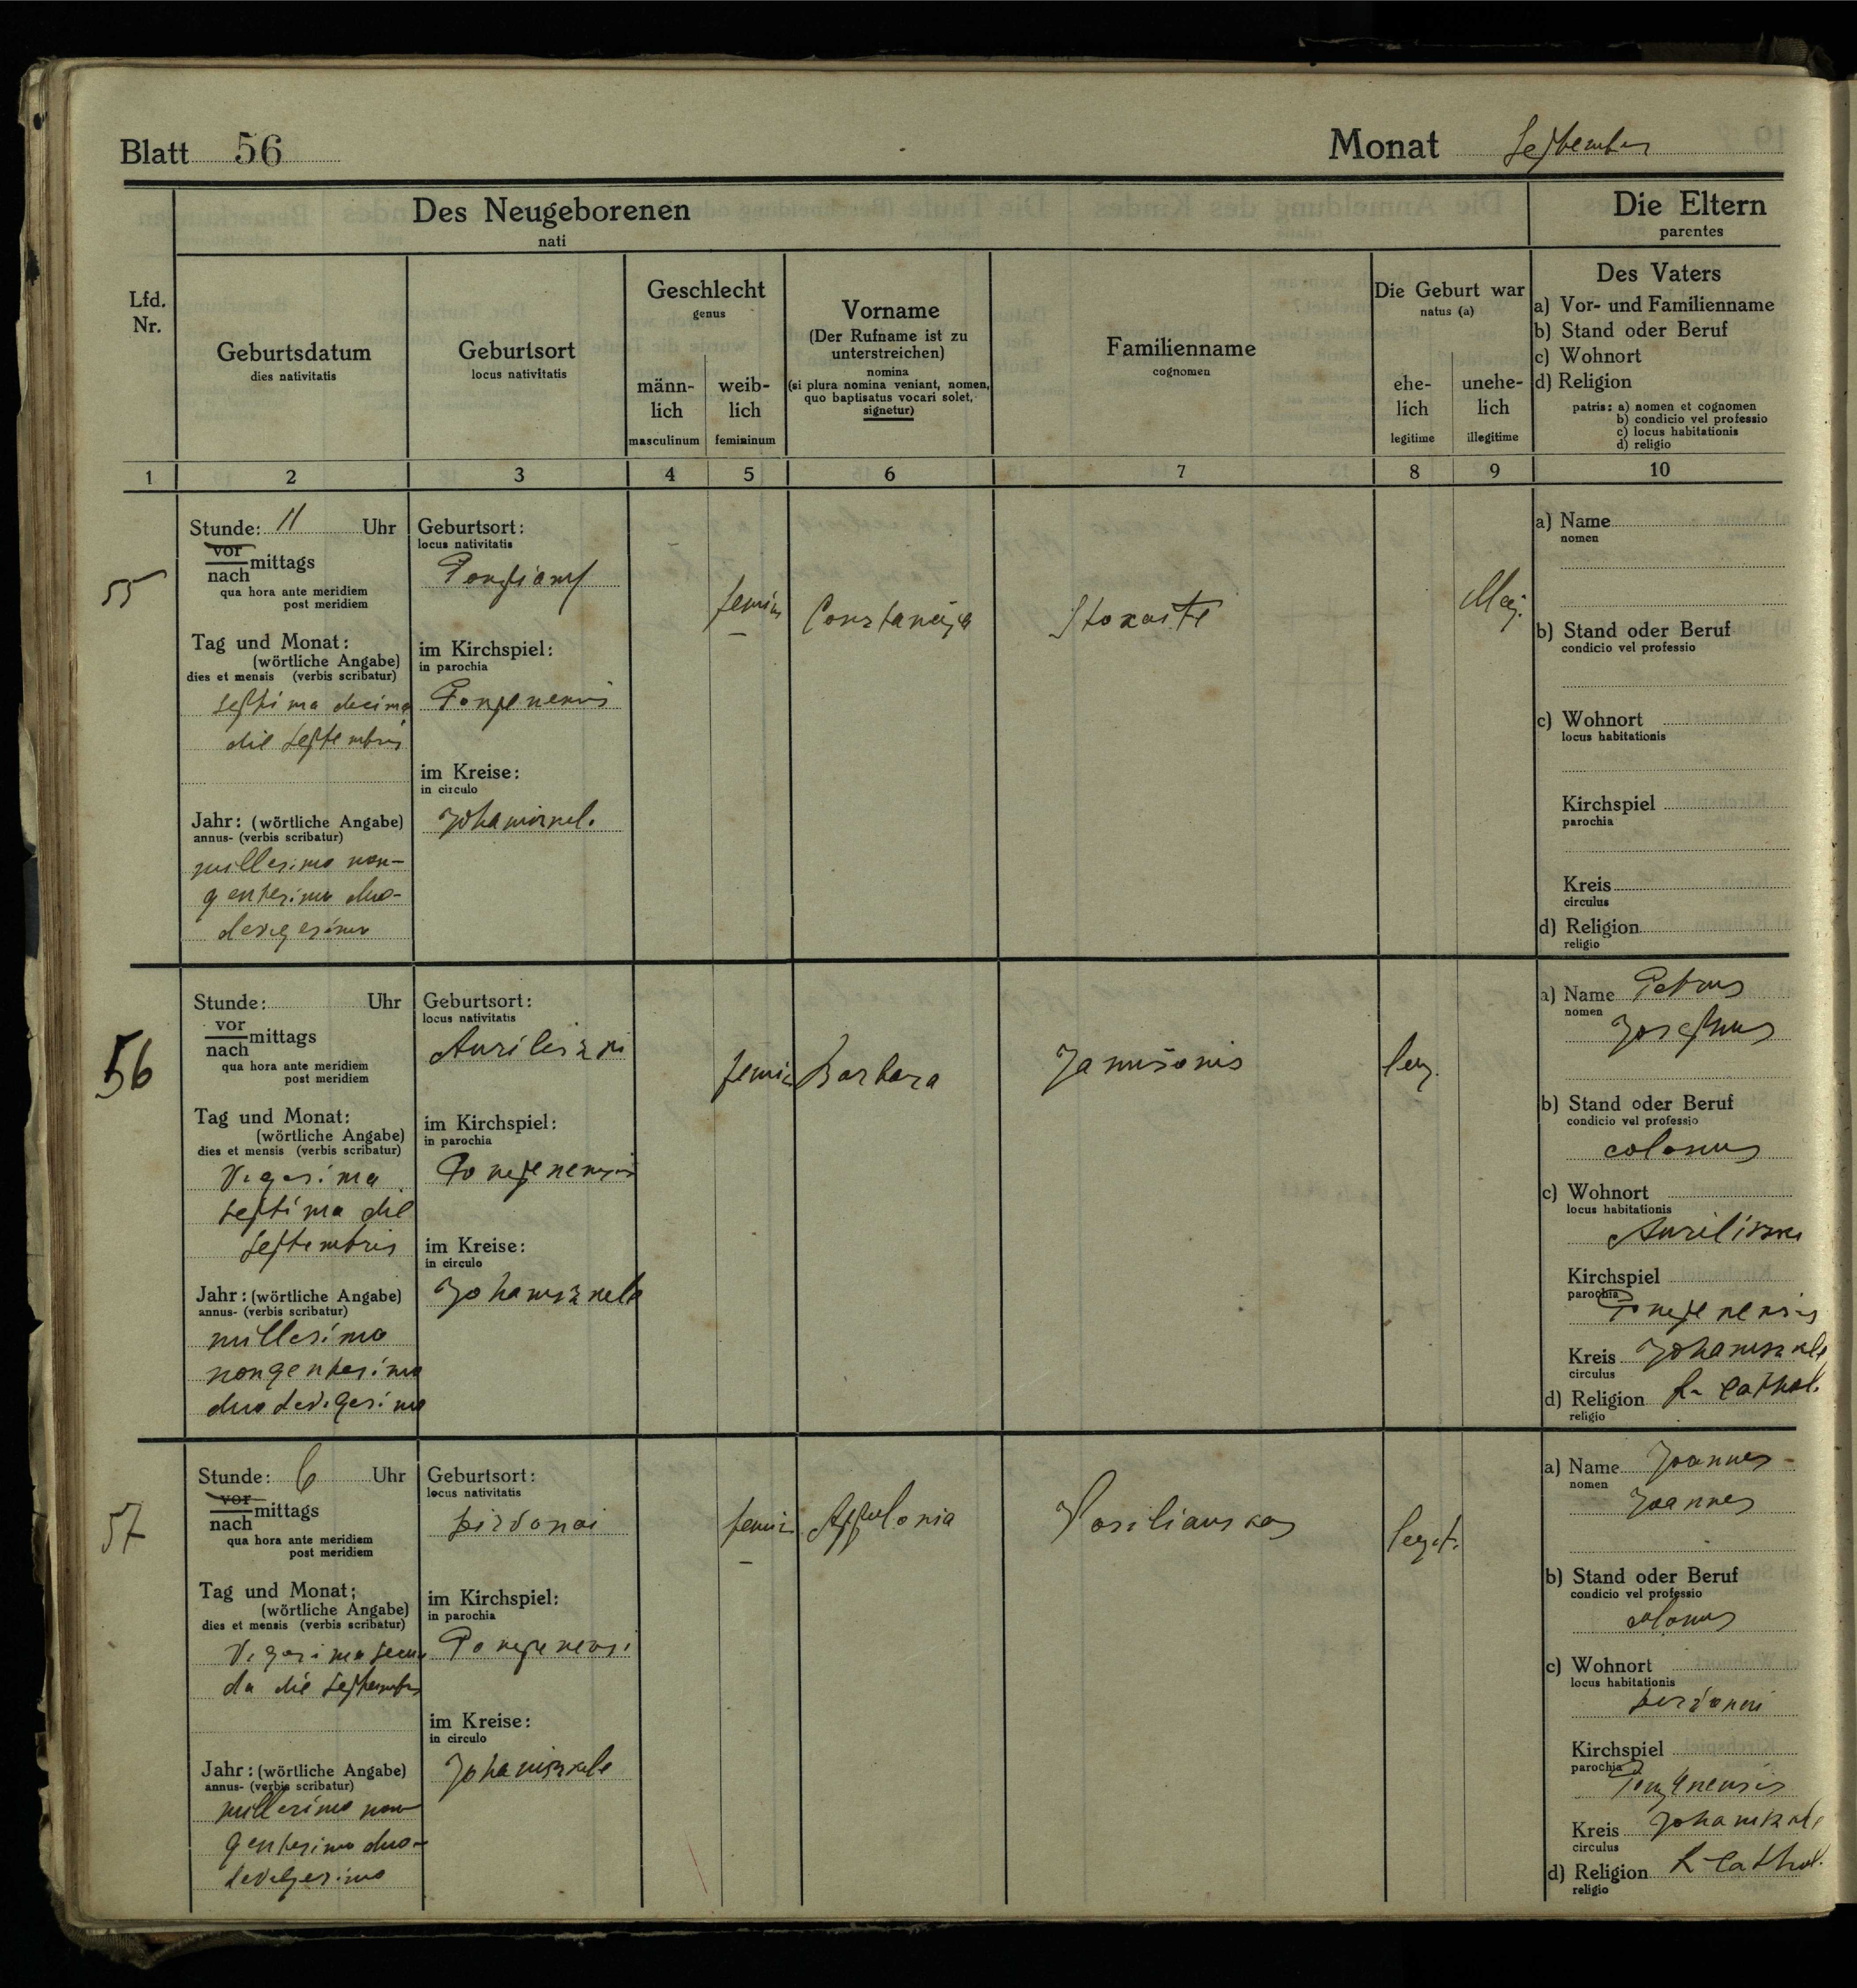 Blatt 56
Monat September
Des Neugeborenen
nati
Die Eltern
parentes
Lfd.
Nr.
Geburtsdatum
dies nativitatis
Geburtsort
locus nativitatis
Geschlecht
genus
männ-
lich
masculinum
weib-
lich
femininum
Vorname
(Der Rufname ist zu
unterstreichen)
nomina
(si plura nomina veniant, nomen,
quo baptisatus vocari solet,
signetur)
Familienname
cognomen
Die Geburt war
natus (a)
ehe-
lich
legitime
unehe-
lich
illegitime
Des Vaters
a) Vor- und Familienname
b) Stand oder Beruf
c) Wohnort
d) Religion
patris: a) nomen et cognomen
b) condicio vel professio
c) locus habitationis
d) religio
1 2 3 4 5 6 7 8 9 10
55
Stunde: 11 Uhr
vor
nach mittags
qua hora ante meridiem
post meridiem
Tag und Monat:
(wörtliche Angabe)
dies et mensis (verbis scribatur)
septima decima
die Septembris
Jahr: (wörtliche Angabe)
annus- (verbis scribatur)
millesimo non-
gentesimo duo-
devigesimo
Geburtsort:
locus nativitatis
im Kirchspiel:
in parochia
im Kreise:
in circulo
femin
Constancija
a) Name
nomen
b) Stand oder Beruf
condicio vel professio
c) Wohnort
locus habitationis
Kirchspiel
parochia
Kreis
circulus
d) Religion
religio
56
Stunde: Uhr
vor
nach mittags
qua hora ante meridiem
post meridiem
Tag und Monat:
(wörtliche Angabe)
dies et mensis (verbis scribatur)
Vigesima
septima die
Septembris
Jahr: (wörtliche Angabe)
annus- (verbis scribatur)
millesimo
nongentesimo
duodevigesimo
Geburtsort:
locus nativitatis
im Kirchspiel:
in parochia
im Kreise:
in circulo
Johaniszkele
femin
Barbara
leg.
a) Name Petrus
nomen
Josephus
b) Stand oder Beruf
condicio vel professio
colonus
c) Wohnort
locus habitationis
Kirchspiel
parochia
Kreis Johaniszkele
circulus
d) Religion R. Cathol.
religio
57
Stunde: 6 Uhr
vor
nach mittags
qua hora ante meridiem
post meridiem
Tag und Monat:
(wörtliche Angabe)
dies et mensis (verbis scribatur)
Vigesima secun
da die Septembris
Jahr: (wörtliche Angabe)
annus- (verbis scribatur)
millesimo non
gentesimo duo-
devigesimo
Geburtsort:
locus nativitatis
im Kirchspiel:
in parochia
im Kreise:
in circulo
Johaniszkele
femin
Appolonia
Vasiliauskas
legit.
a) Name Joannes -
nomen
Joannes
b) Stand oder Beruf
condicio vel professio
colonus
c) Wohnort
locus habitationis
Kirchspiel
parochia
Kreis Johaniszkele
circulus
d) Religion R Cathol.
religio